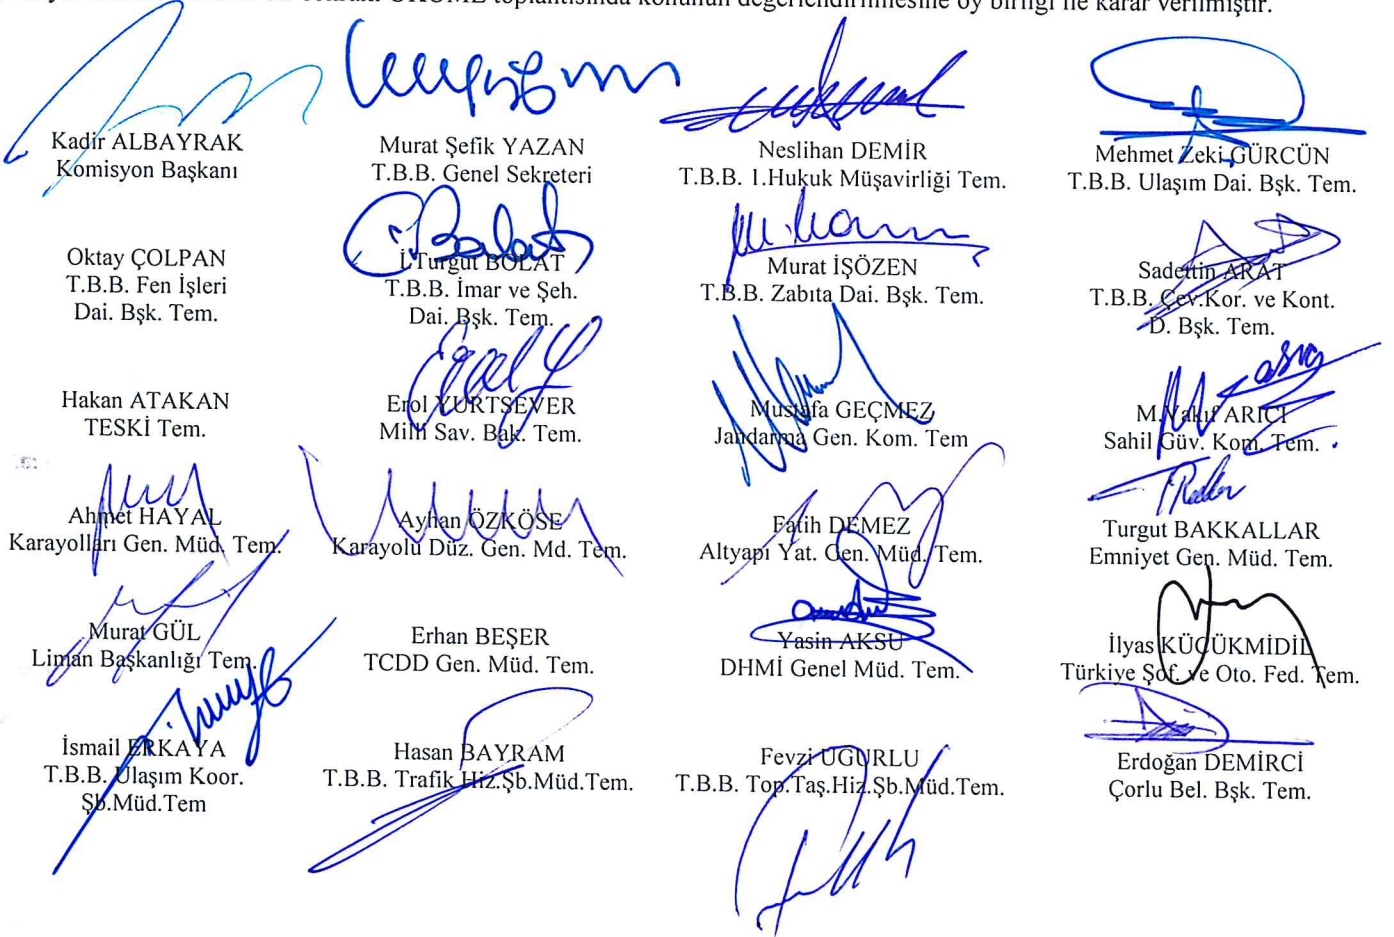 toplantısında konunun değerlendirilmesine oy birliği ile karar verilmiştir.
Kadir ALBAYRAK
Komisyon Başkanı
Murat Şefik YAZAN
T.B.B. Genel Sekreteri
Neslihan DEMİR
T.B.B. 1.Hukuk Müşavirliği Tem.
Mehmet Zeki GÜRCÜN
T.B.B. Ulaşım Dai. Bşk. Tem.
Oktay ÇOLPAN
T.B.B. Fen İşleri
Dai. Bşk. Tem.
İ.Turgut BOLAT
T.B.B. İmar ve Şeh.
Dai. Bşk. Tem.
Murat İŞÖZEN
T.B.B. Zabıta Dai. Bşk. Tem.
Sadettin ARAT
T.B.B. Çev.Kor. ve Kont.
D. Bşk. Tem.
Hakan ATAKAN
TESKİ Tem.
Erol YURTSEVER
Milli Sav. Bak. Tem.
Mustafa GEÇMEZ
Jandarma Gen. Kom. Tem
M.Vakıf ARICI
Sahil Güv. Kom. Tem.
Ahmet HAYAL
Karayolları Gen. Müd. Tem.
Ayhan ÖZKÖSE
Karayolu Düz. Gen. Md. Tem.
Fatih DEMEZ
Altyapı Yat. Gen. Müd. Tem.
Turgut BAKKALLAR
Emniyet Gen. Müd. Tem.
Murat GÜL
Liman Başkanlığı Tem.
Erhan BEŞER
TCDD Gen. Müd. Tem.
Yasin AKSU
DHMİ Genel Müd. Tem.
İlyas KÜÇÜKMİDİL
Türkiye Şof. ve Oto. Fed. Tem.
İsmail ERKAYA
T.B.B. Ulaşım Koor.
Şb.Müd.Tem
Hasan BAYRAM
T.B.B. Trafik Hiz.Şb.Müd.Tem.
Fevzi UĞURLU
T.B.B. Top.Taş.Hiz.Şb.Müd.Tem.
Erdoğan DEMİRCİ
Çorlu Bel. Bşk. Tem.